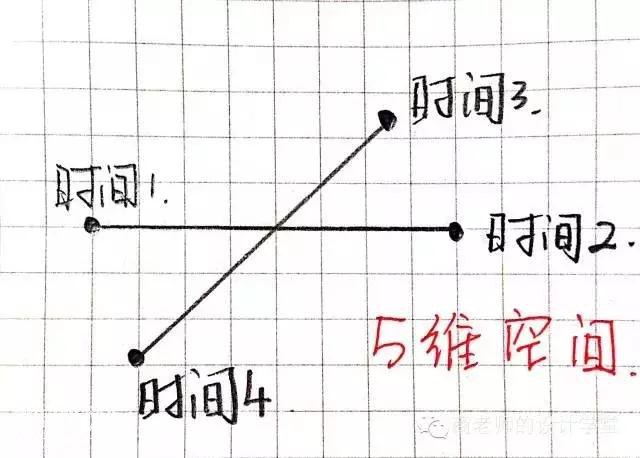 时间3.
时间1.
时间2.
5维空间.
时间4
的设计学堂